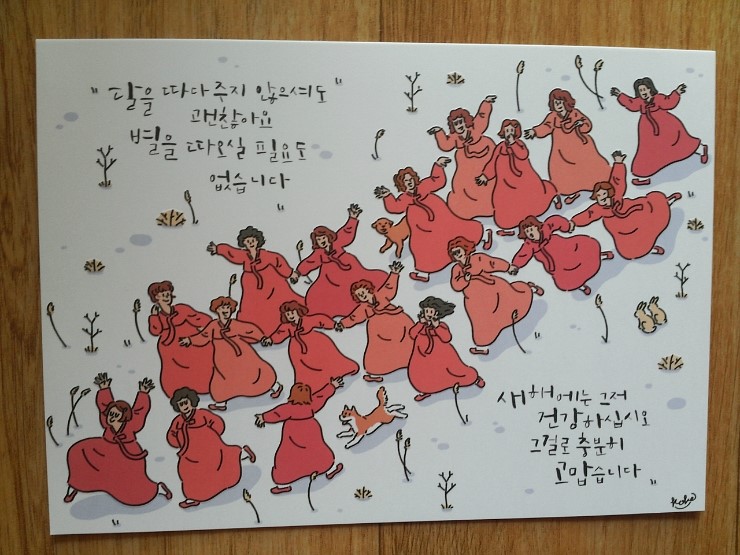 "달을 따다주지 않으셔도"
괜찮아요
별을 따오실 필요도
없습니다
새해에는 그저
건강하십시오
그걸로 충분히
고맙습니다